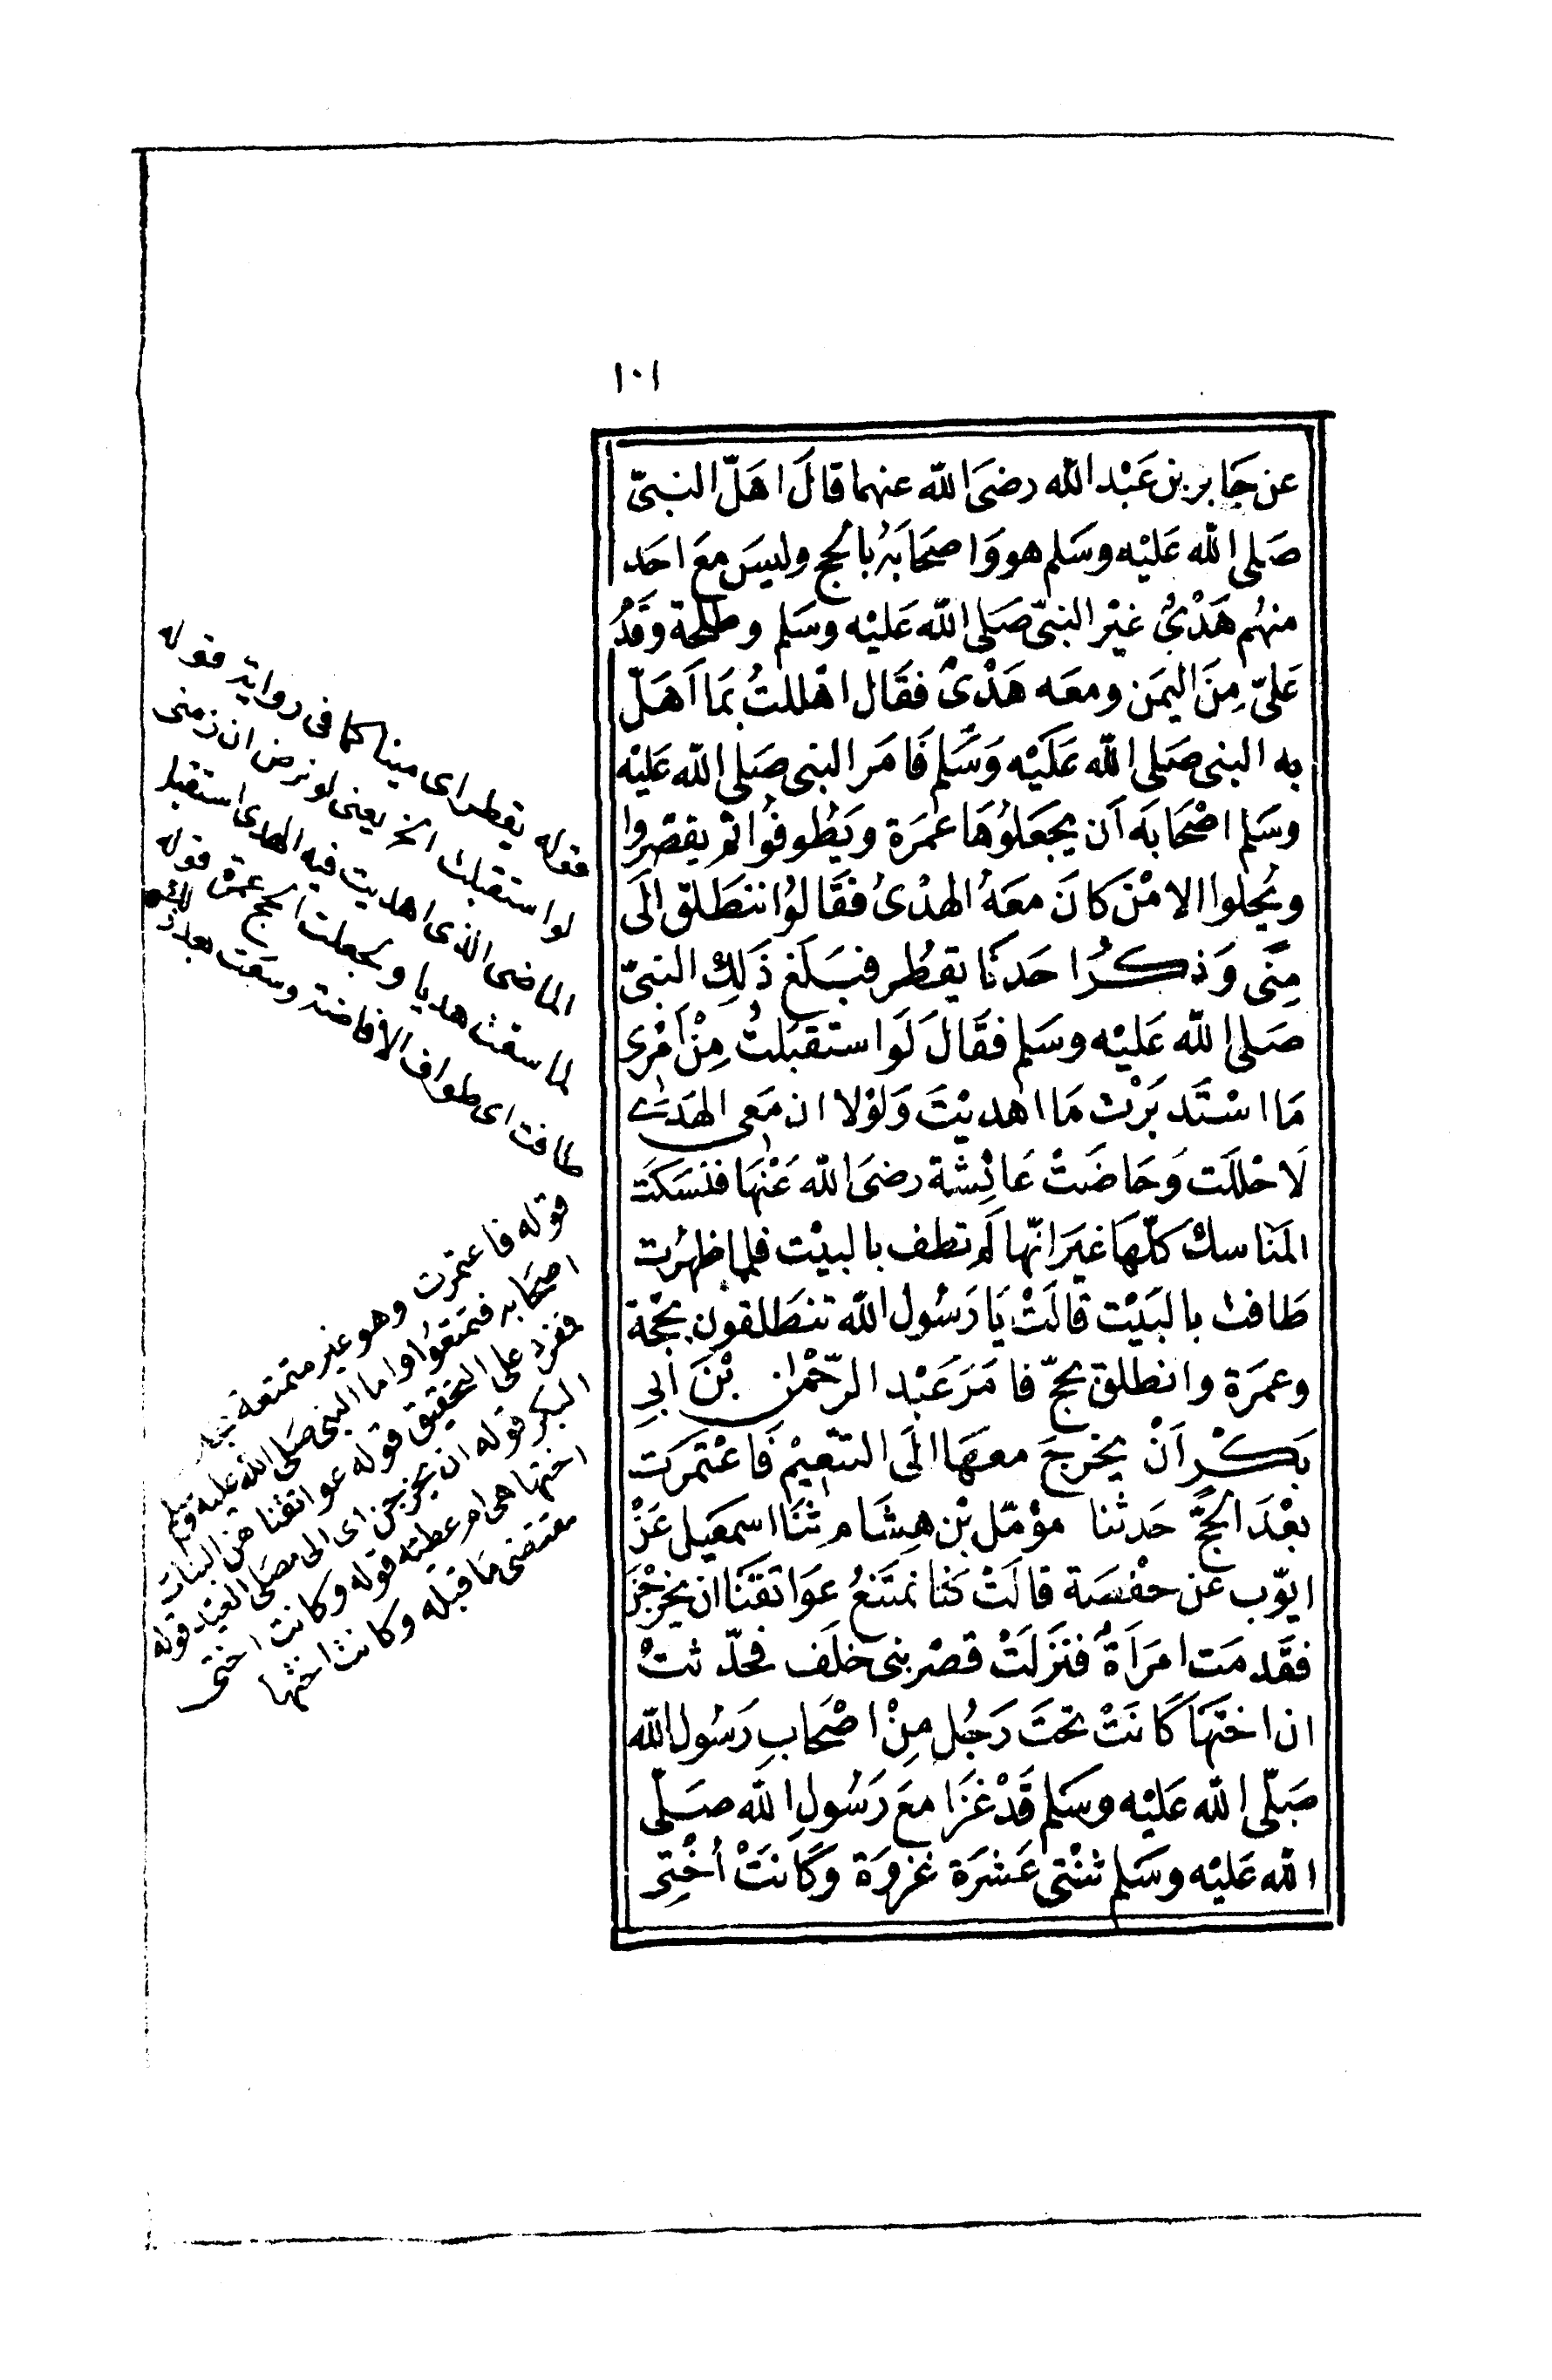 ١٠١
عن جَابر بن عَبْد الله رضىَ الله عنهما قالَ اهَلّ النبىّ
صَلى الله عَليْه وسَلم هو وَاصحَابَهُ بالحج وليسَ معَ احَد
منهُم هَدْىٌ غيْر النبىّ صَلى الله عَليْه وسَلم وطلحة وقَدُ
عَلىّ مِنَ اليمَن ومعَه هَدْىٌ فقَال اهْللتُ بمَا اَهَلّ
به النبى صَلى الله عَلَيْه وَسَّلم فَامَر النبى صَلى الله عَليْه
وسَلم اصْحَابَه اَن يجعَلوُهَا عمَرة ويَطوفوُا ثم يقصّروا
ويُحلوا الا مْنَ كانَ معَهُ الهدْىُ فقَالوُا ننطَلق الَى
مِنَى وَذكرُا حَدنَا يقطر فبَلَغ ذَلِك النبىّ
صَلى الله عَليْه وسَلم فقَالَ لَو استقبَلتُ مِنْ اَمْرى
مَا اسْتَد بَرْت مَا اهديْتَ وَلوْلا ان مَعى الهَدى
لَاحْللَت وَحَاضَتْ عَائِشَة رضىَ الله عَنْهَا فنسَكَت
المَنَاسكْ كلّهَا غيَر انّها لَم تطف بالبيْت فلما ظهُرت
طَافت بالبَيْت قالَتْ يَا رَسُول الله تنطَلقون بحْجة
وعمَرة وانطلق بحجّ فامَرَ عَبْد الرّحْمٰن بْنَ اَبِى
بَكْر اَنْ يخرجَ معهَا الَى التنعِيْم فَاعْتمَرَت
بعْدَ الحَجّ حَدثنا مؤمّل بْن هِشَام ثنَا اسمعيل عَنْ
ايوّب عن حفْصَة قالَتْ كنا نمتَنعُ عوَاتقنَا ان يخرجْنَ
فقَد مَت امرَاَةٌ فنَزلَتْ قصْر بنى خلَف فحدّ ثتْ
ان اختَهَا كَانَتْ تحتَ رَجُل مِنْ اصْحَابِ رَسُول الله
صَلّى الله عَليْه وسَلم قَدْ غزَا معَ رَسُولِ الله صَلّى
الله عَليْه وسَلم ثنْتى عَشرَة غزوَة وَكَانَتْ اُخْتِى
قوله يقطر اى مينا كما فى رواية قوله
لو استقبلت الخ يعنى لو فرض ان زمنى
الماضى الذى اهديت فيه الهدى استقبل
لما سقت هديا ولجعلت الحج عمرة قوله
طافت اى طواف الافاضة وسعت بعد
قوله فاعتمرت وهو غير متمتعة
اصحابه فتمتعوا واما النبى صلى الله عليه وسلم
ففرد على التحقيق قوله عواتقنا هن البنات
البكر قوله ان يخرجن اى الى مصلى العيد قوله
اختها هى ام عطية قوله وكانت اختى
مقتضى ما قبله وكانت اختها